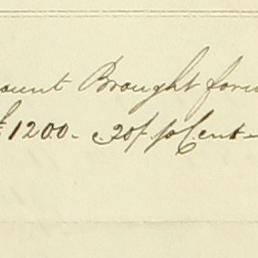 ount Brought forw
£1200 - 20 p Cent -